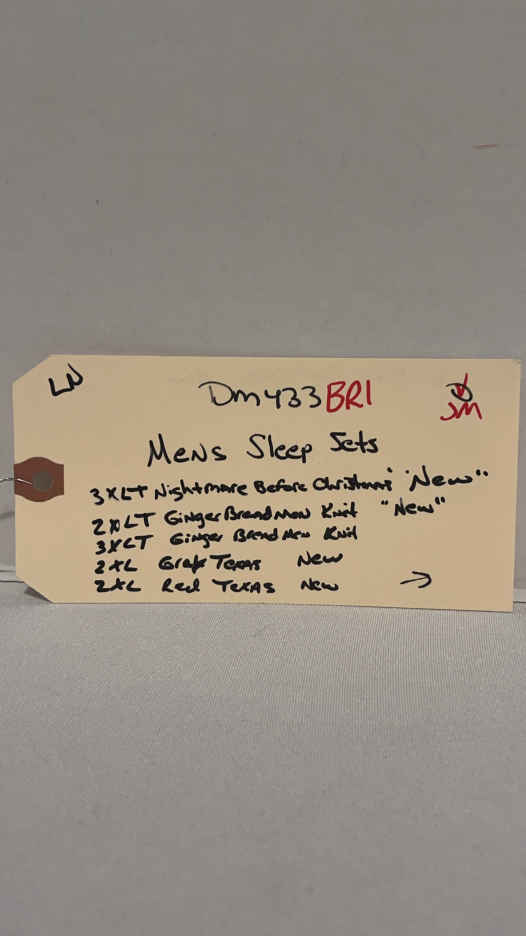 LN
Dm433 BR1
JM
Mens Sleep Sets
3XLT Nightmare Before Christmas" "New"
2XLT Ginger Bread Men Knit "New"
3XLT Ginger Bread Men Knit
2XL Texas New
2XL Red Texas New →